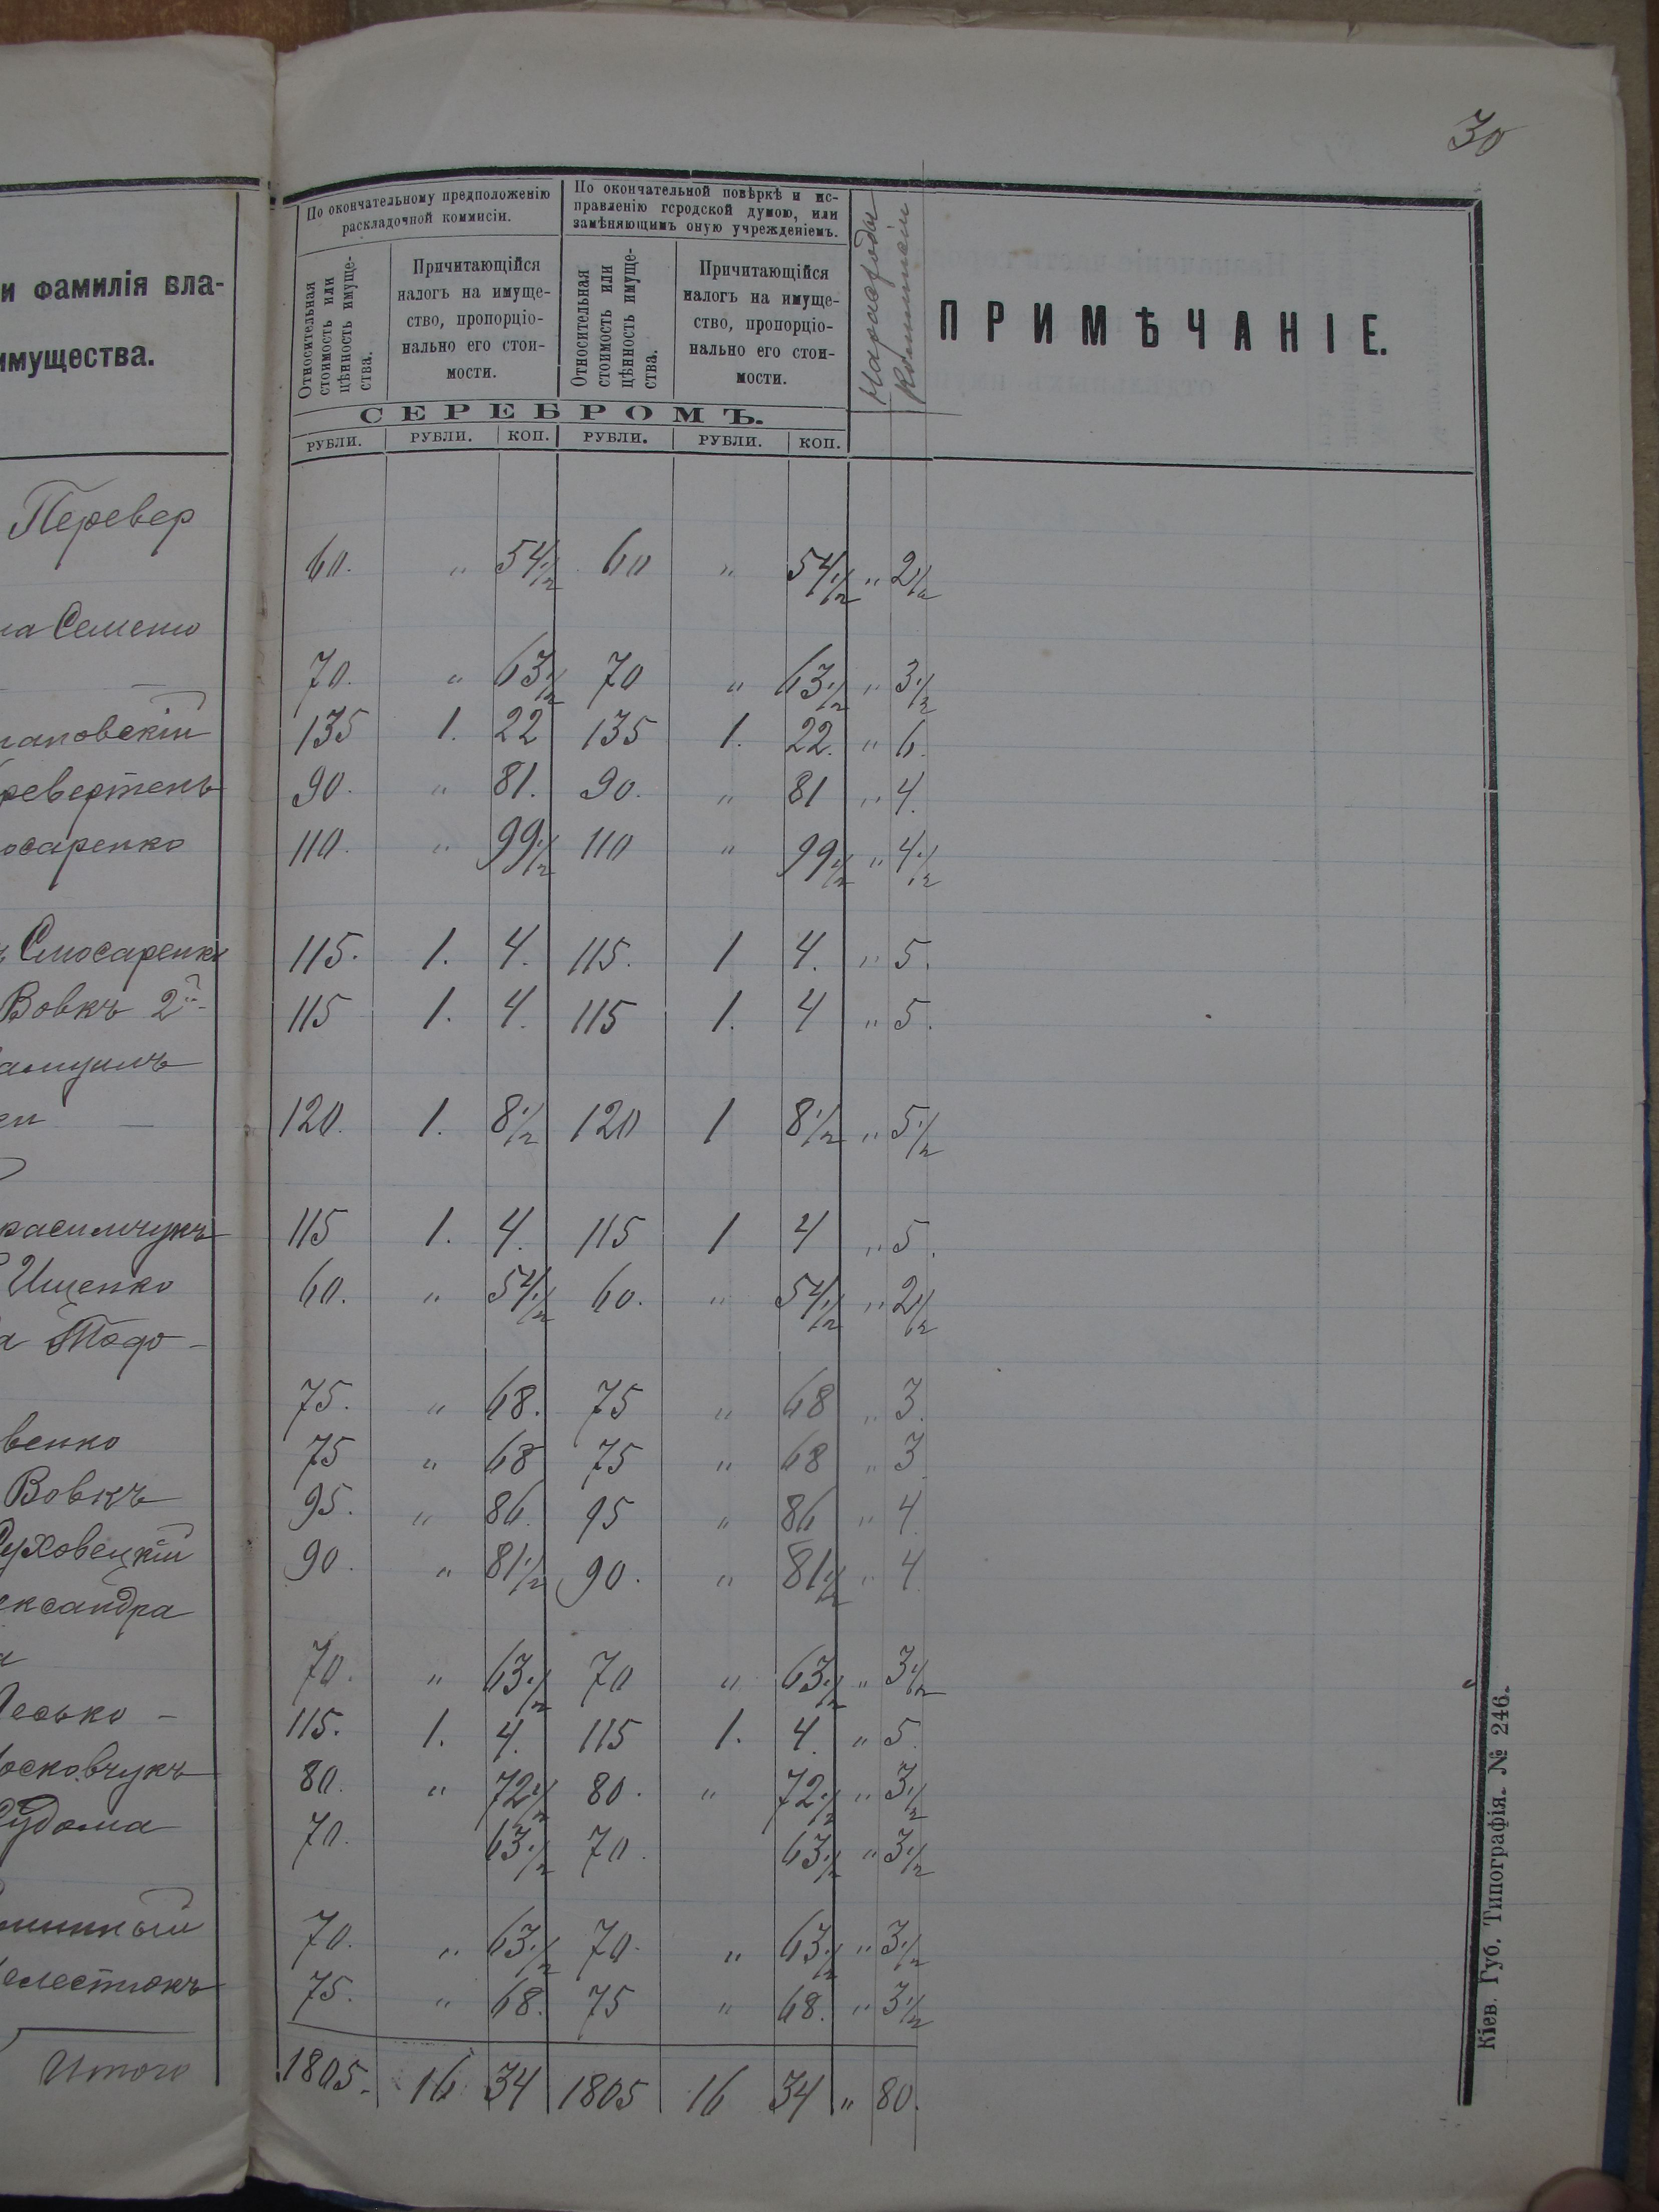 30
и фамилія вла-
имущества.
По окончательному предположенію
раскладочной коммисіи.
По окончательной повѣркѣ и ис-
правленію городской думою, или
замѣняющимъ оную учрежденіемъ.
Относительная
стоимость или
цѣнность имуще-
ства.
Причитающійся
налогъ на имуще-
ство, пропорціо-
нально его стои-
мости.
Относительная
стоимость или
цѣнность имуще-
ства.
Причитающійся
налогъ на имуще-
ство, пропорціо-
нально его стои-
мости.
На расходы
Коммисіи
ПРИМѢЧАНІЕ.
СЕРЕБРОМЪ.
РУБЛИ. РУБЛИ. КОП. РУБЛИ. РУБЛИ. КОП.
Перевер
60. " 54 1/2 60 " 54 1/2 " 2 1/2
на Семено
70. " 63 1/2 70 " 63 1/2 " 3 1/2
пановскій 135 1. 22 135 1. 22. " 6.
ревертень 90. " 81. 90. " 81 " 4.
осаренко 110. " 99 1/2 110 " 99 1/2 " 4 1/2
Слюсаренко 115. 1. 4. 115. 1 4. " 5.
Вовкъ 2й 115 1. 4. 115 1. 4 " 5.
120. 1. 8 1/2 120 1 8 1/2 " 5 1/2
расимчукъ 115 1. 4. 115 1 4 " 5.
Ищенко 60. " 54 1/2 60. " 54 1/2 " 2 1/2
а Тодо-
75. " 68. 75 " 68 " 3.
венко 75 " 68 75 " 68 " 3
Вовкъ 95. " 86. 95 " 86 " 4
уховецкій 90. " 81 1/2 90. " 81 1/2 " 4
ександра
70. " 63 1/2 70 " 63 1/2 " 3 1/2
есько - 115. 1. 4. 115 1. 4. " 5.
осковчукъ 80. " 72 1/2 80. " 72 1/2 " 3 1/2
удома 70. 63 1/2 70. 63 1/2 " 3 1/2
70. " 63 1/2 70. " 63 1/2 " 3 1/2
елестюкъ 75. " 68. 75 " 68. " 3 1/2
Итого 1805. 16 34 1805 16 34 " 80.
Кіев. Губ. Типографія. № 246.